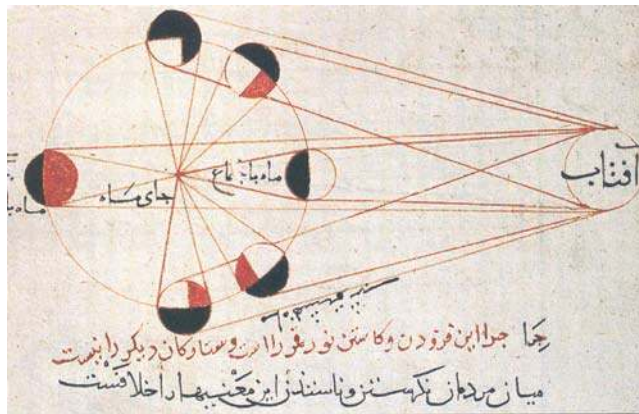 آفتاب
ماه باجتماع
جای ماه
ماه با
چرا این فزودن و کاستن نور قمر راست و ستارگان دیگر را نیست
میان مردمان نگرستن و ناسندن این معنیها را خلافست